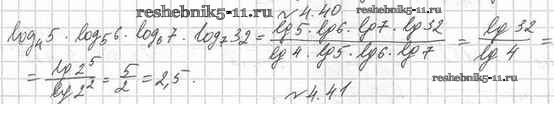 www.reshebnik5-11.ru
№4.40
log₄5 · log₅6 · log₆7 · log₇32 = (lg5 · lg6 · lg7 · lg32)/(lg4 · lg5 · lg6 · lg7) = lg32/lg4 =
= lg2⁵/lg2² = 5/2 = 2,5.
www.reshebnik5-11.ru
№4.41